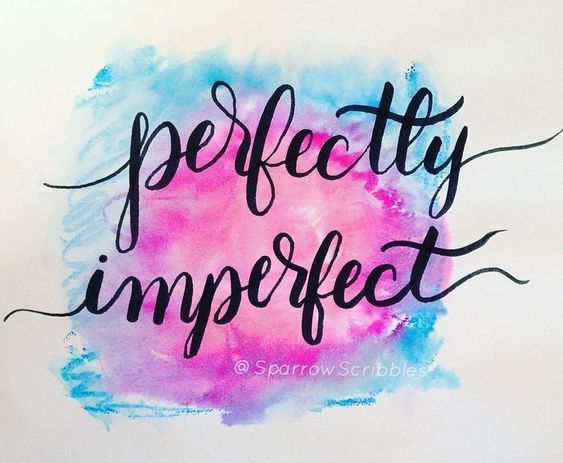 perfectly
imperfect
@SparrowScribbles